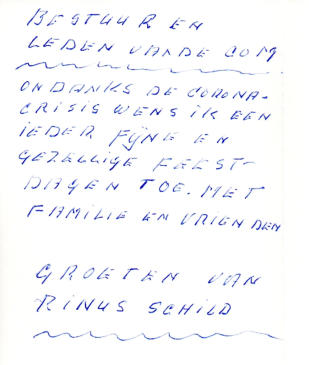 BESTUUR EN
LEDEN VANDE COM
ONDANKS DE CORONA-
CRISIS WENS IK EEN
IEDER FIJNE EN
GEZELLIGE FEEST-
DAGEN TOE. MET
FAMILIE EN VRIENDEN
GROETEN VAN
RINUS SCHILD